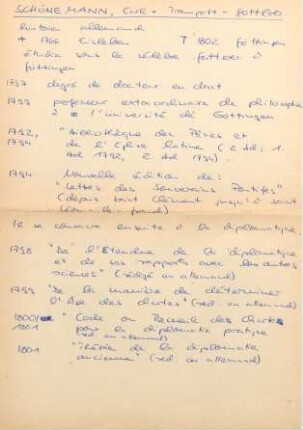 SCHÖNEMANN, Carl - Traugott - Gottlob
historien allemand
* 1766 Eisleben † 1802 Göttingen
étudia sous le célèbre Gatterer à
Göttingen
1787 degré de docteur en droit
professeur extraordinaire de philosophie
à l'université de Göttingen
1792, "Bibliothèque des Pères et
1794 de l'Eglise latine" (2 Bd; 1.
Bd 1792, 2 Bd 1794).
1794 Nouvelle édition de:
"Lettres des Souverains Pontifes"
(depuis saint Clément jusqu'à saint
Léon-le-Grand)
Il se consacra ensuite à la diplomatique.
1798 "De l'étendue de la diplomatique
et de ses rapports avec les autres
sciences" (rédigé en allemand)
1799 "De la manière de déterminer
l'âge des chartes" (réd. en allemand)
1800/ "Code ou Recueil des Chartes
1801 pour la diplomatie pratique
(réd. en allemand)
1801 "Théorie de la diplomatie
ancienne" (réd. en allemand)